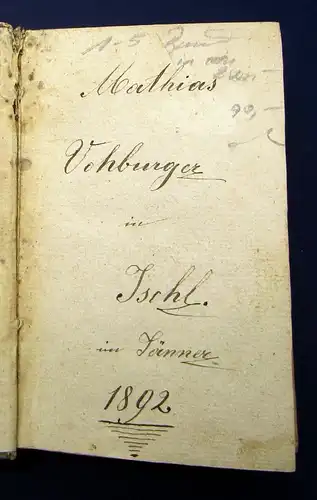 1-5
Mathias
90,-
Vohburger
in
Ischl.
im Jänner
1892